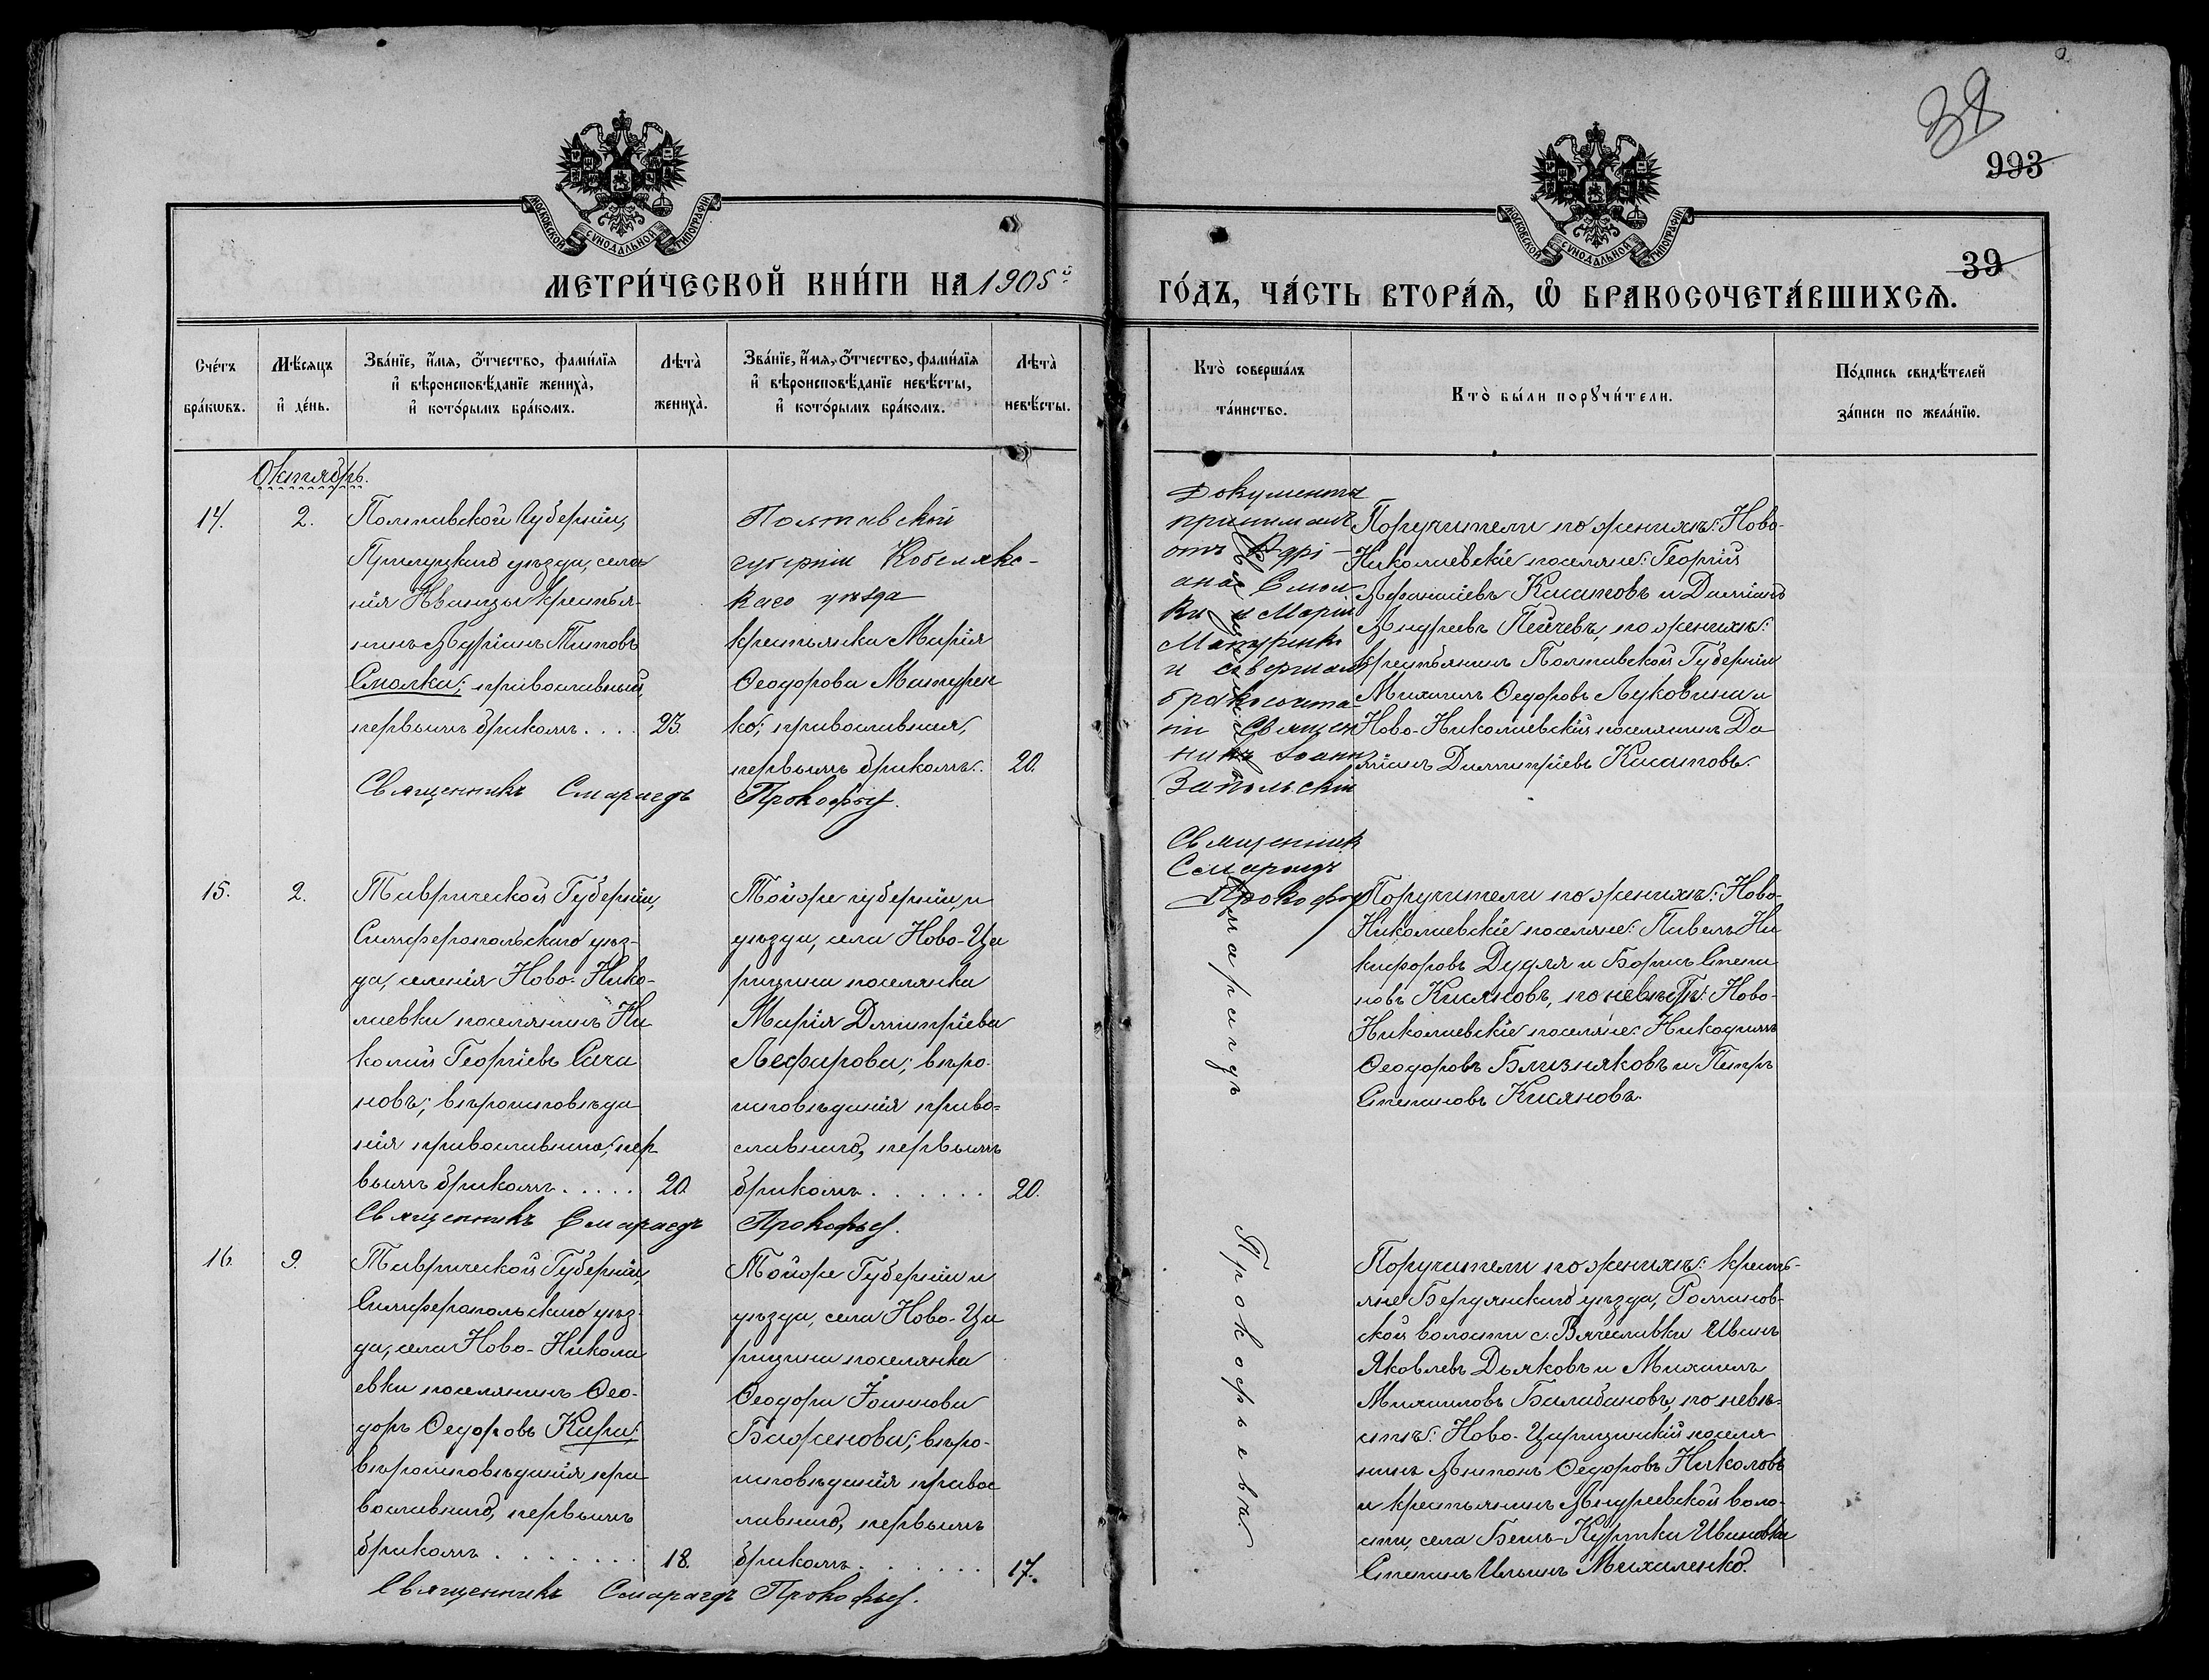 38
993
39
МОСКОВСКОЙ СѴНОДАЛЬНОЙ ТИПОГРАФІИ
МОСКОВСКОЙ СѴНОДАЛЬНОЙ ТИПОГРАФІИ
МЕТРИ́ЧЕСКОЙ КНИ́ГИ НА 1905й
ГО́ДЪ, ЧА́СТЬ ВТОРА́Я, Ѡ҆ БРАКОСОЧЕТА́ВШИХСѦ.
Сче́тъ
бра́кѡвъ.
Мѣ́сѧцъ
и҆ де́нь.
Зва́нїе, и҆́мѧ, ѻ҆́тчество, фами́лїѧ
и҆ вѣроисповѣ́данїе жениха̀,
и҆ кото́рымъ бра́комъ.
Лѣта̀
жениха̀.
Зва́нїе, и҆́мѧ, ѻ҆́тчество, фами́лїѧ
и҆ вѣроисповѣ́данїе невѣ́сты,
и҆ кото́рымъ бра́комъ.
Лѣта̀
невѣ́сты.
Кто̀ соверша́лъ
та́инство.
Кто̀ бы́ли порꙋчи́тели.
По́дпись свидѣ́телей
за́писи по жела́нїю.
Октябрь.
14.
2.
Полтавской Губерніи,
Прилуцкаго уѣзда, селе
нія Иваницы крестья-
нинъ Адріанъ Титовъ
Смолка; православный,
первымъ бракомъ . . . .
23.
Полтавской
губерніи Кобеляк-
каго уѣзда
крестьянка Марія
Ѳеодорова Матурен
ко; православная,
первымъ бракомъ.
20.
Священникъ Смарагдъ Прокофьев.
Документы
принималъ
отъ Адрі-
ана Смол
ки и Маріи
Матуренко
и совершалъ
бракосочета-
ніе Священ
никъ Іоаннъ
Запольскій
Священник
Смарагдъ
Прокофьев
Поручители по женихѣ: Ново-
Николаевскіе поселяне: Георгій
Афанасіевъ Касатовъ и Даміанъ
Андреевъ Пейчевъ, по женихѣ:
крестьянинъ Полтавской Губерніи
Михаилъ Ѳедоровъ Луковина и
Ново-Николаевскій поселянинъ Да
міанъ Димитріевъ Касатовъ.
15.
2.
Таврической Губерніи,
Симферопольскаго уѣз-
да, селенія Ново-Нико-
лаевки поселянинъ Ни
колай Георгіевъ Сача
новъ; вѣроисповѣда
нія православнаго, пер
вымъ бракомъ . . . . .
20.
Тойже губерніи, и
уѣзда, села Ново-Ца
рицина поселянка
Марія Димитріева
Лефирова; вѣро-
исповѣданія право-
славнаго, первымъ
бракомъ . . . . . .
20.
Священникъ Смарагдъ Прокофьев.
Священникъ Смарагдъ Прокофьевъ.
Поручители по женихѣ: Ново-
Николаевскіе поселяне: Павелъ Ни
кифоровъ Дудля и Борисъ Степа
новъ Кисяковъ, по невѣстѣ: Ново-
Николаевскіе поселяне: Никодимъ
Ѳеодоровъ Близняковъ и Петръ
Степановъ Кисяновъ.
16.
9.
Таврической Губерніи,
Симферопольскаго уѣз-
да, села Ново-Никола
евки поселянинъ Ѳео-
доръ Ѳедоровъ Кара;
вѣроисповѣданія пра
вославнаго, первымъ
бракомъ . . . . . . .
18.
Тойже Губерніи и
уѣзда, села Ново-Ца
рицина поселянка
Ѳеодора Іоаннова
Баженова; вѣро-
исповѣданія правос
лавнаго, первымъ
бракомъ . . . . . .
17.
Священникъ Смарагдъ Прокофьев.
Поручители по женихѣ: кресть-
яне Бердянскаго уѣзда, Романов-
ской волости с. Вячеславки Иванъ
Яковлевъ Дьяковъ и Михаилъ
Михаиловъ Балабановъ, по невѣ-
стѣ: Ново-Царицинскій поселя
нинъ Антонъ Ѳедоровъ Николовъ
и крестьянинъ Андреевской воло-
сти, села Бешъ-Куртки Ивановки
Степанъ Ильинъ Михаленко.